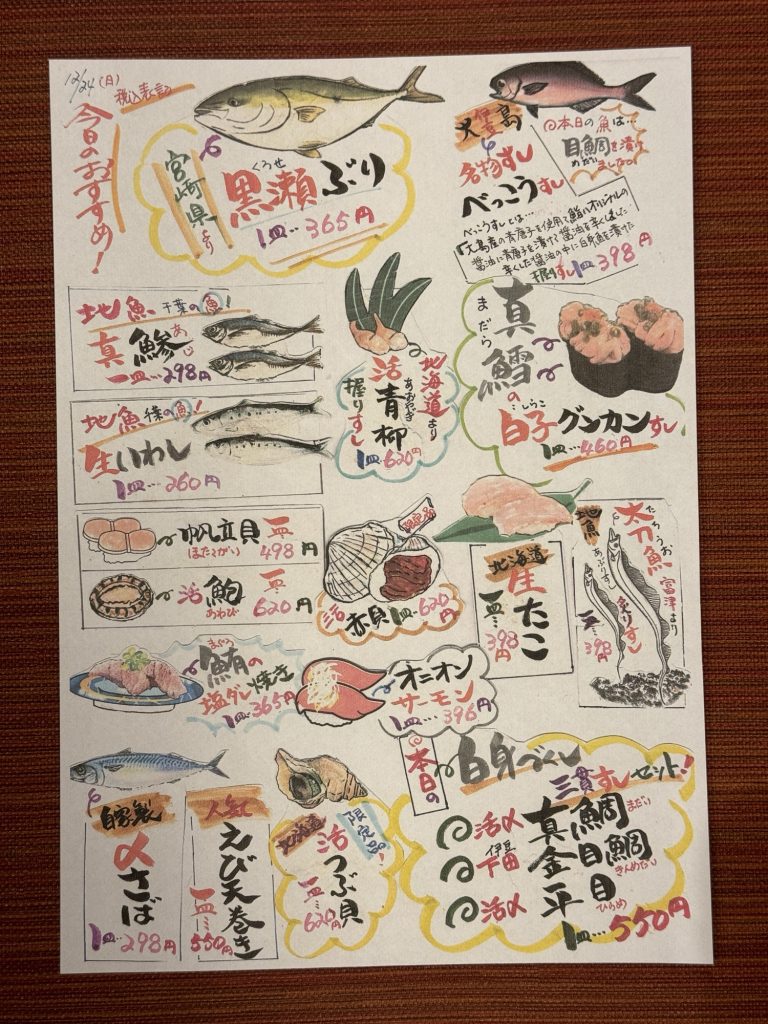 12/24(日)
税込表記
今日のおすすめ！
宮崎県より
くろせ
黒瀬ぶり
1皿…365円
伊豆
大島
名物ずし
べっこうずし
@本日の魚は…
目鯛を漬け
めだい
ましたっ
べっこうずしとは…
大島産の青唐子を使用して鮨に
醤油に青唐子を漬けて醤油を辛くしました
辛くした醤油の中に白身魚を漬けた
握りずし 1皿…398円
地魚 千葉の魚！
真鯵
あじ
一皿…298円
地魚 千葉の魚！
生いわし
1皿…260円
北海道より
活青柳
あおやぎ
握りずし
1皿…620円
まだら
真鱈の
しらこ
白子グンカンずし
1皿…460円
帆立貝
ほたてがい
一皿…498円
活鮑
あわび
一皿…620円
限定品
活赤貝 1皿…620円
北海道
生たこ
一皿…398円
地魚
たちうお
太刀魚
富津より
あぶりずし
炙りずし
一皿…398円
まぐろ
鮪の
塩ダレ焼き
1皿…365円
オニオン
サーモン
1皿…396円
自家製
〆さば
1皿…298円
人気
えび天巻き
一皿…550円
北海道
限定品！
活つぶ貝
一皿…620円
本日の
白身づくし
三貫ずしセット！
活〆 真鯛 まだい
伊豆
下田 金目鯛 きんめだい
活〆 平目
ひらめ
1皿…550円